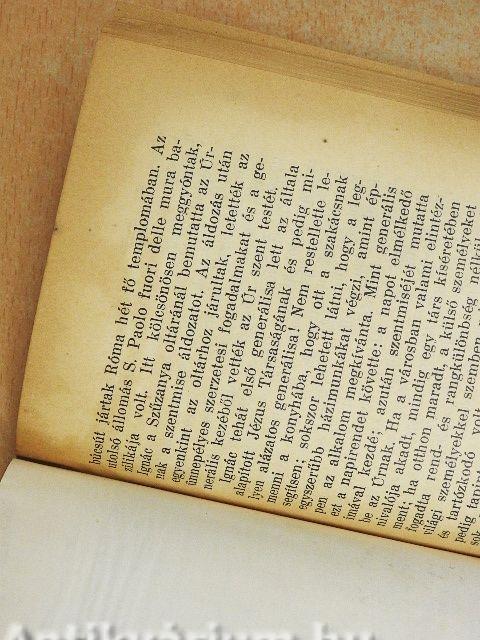 búcsút jártak Róma hét fő templomában. Az
utolsó állomás S. Paolo fuori delle mura ba-
zilikája volt. Itt kölcsönösen meggyóntak,
Ignác a Szűzanya oltáránál bemutatta az Úr-
nak a szentmise áldozatot. Az áldozás után
egyenkint az oltárhoz járultak, letették az
ünnepélyes szerzetesi fogadalmakat és a ge-
nerális kezéből vették az Úr szent testét.
Ignác tehát első generálisa lett az általa
alapított Jézus Társaságának és pedig mi-
lyen alázatos generálisa! Nem restellette le-
menni a konyhába, hogy ott a szakácsnak
segítsen; sokszor lehetett látni, hogy a leg-
egyszerűbb házimunkákat végzi, amint ép-
pen az alkalom megkívánta. Mint generális
ezt a napirendet követte: a napot elmélkedő
imával kezdé; azután szentmiséjét mutatta
be az Úrnak. Ha a városban valami elintéz-
nivalója akadt, mindig egy társ kíséretében
ment; ha otthon maradt, a külső személyeket
fogadta rend- és rangkülönbség nélkül
világi személyekkel szemben
és tartózkodó
pedig
sok
Antikvárium.hu